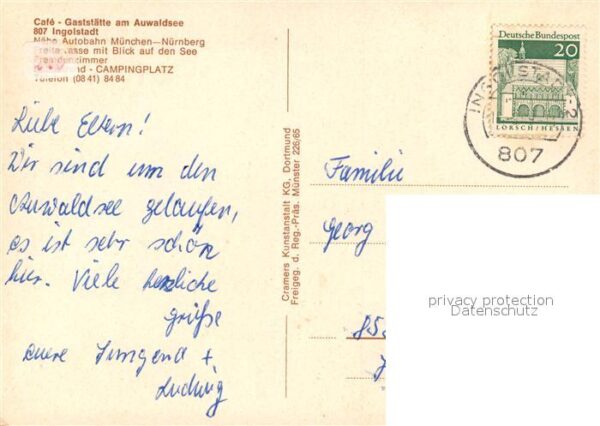 Café - Gaststätte am Auwaldsee
807 Ingolstadt
Nähe Autobahn München—Nürnberg
Freiterrasse mit Blick auf den See
Fremdenzimmer
CAMPINGPLATZ
Telefon (08 41) 84 84
Liebe Eltern!
Wir sind um den
Auwaldsee gelaufen,
es ist sehr schön
hier. Viele herzliche
grüße
eure Irmgard +
Ludwig
Cramers Kunstanstalt KG, Dortmund
Freigeg. d. Reg.-Präs. Münster 226/65
Deutsche Bundespost
20
LORSCH/HESSEN
INGOLSTADT 2
807
Familie
Georg
85
privacy protection
Datenschutz